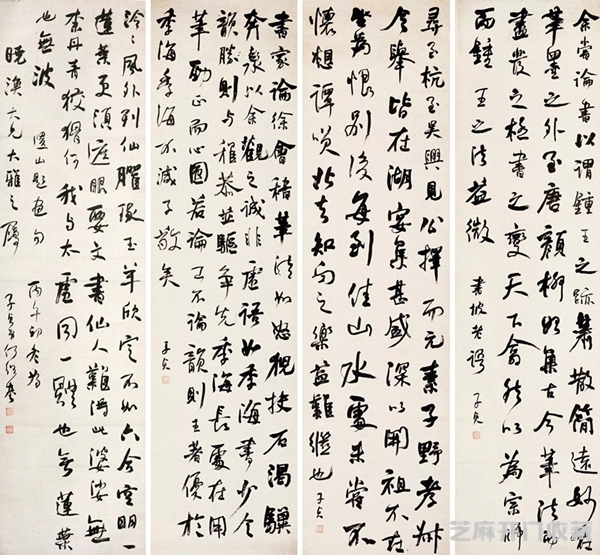 余嘗論書以謂鍾王之跡蕭散簡遠妙在
筆墨之外至唐顏柳始集古今筆法而
盡發之極書之變天下翕然以為宗師
而鍾王之法益微 書坡老語 子貞
尋至杭至吳興見公擇而元素子野孝叔
令舉皆在湖宴集甚盛深以開祖不在
坐為恨別後每到佳山水處未嘗不
懷想譚笑北去知向之樂益難繼也 子貞
書家論徐會稽筆法如怒猊抉石渴驥
奔泉以余觀之誠非虛語如季海筆少令
韻勝則與稚恭並驅爭先季海長處在用
筆勁正而心圓若論工不論韻則王著優於
季海季海不減子敬矣 子貞
泠泠風外到仙臞琢玉羊欣定不如六合空明一
蓮葉更須遮眼要文書仙人難此婆娑無
李丹青狡獪何我與太虛同一體也無蓮葉
也無波 遺山題畫句
曉漁大兄大雅之屬 丙午初
子貞弟何紹基
芝麻开门收藏